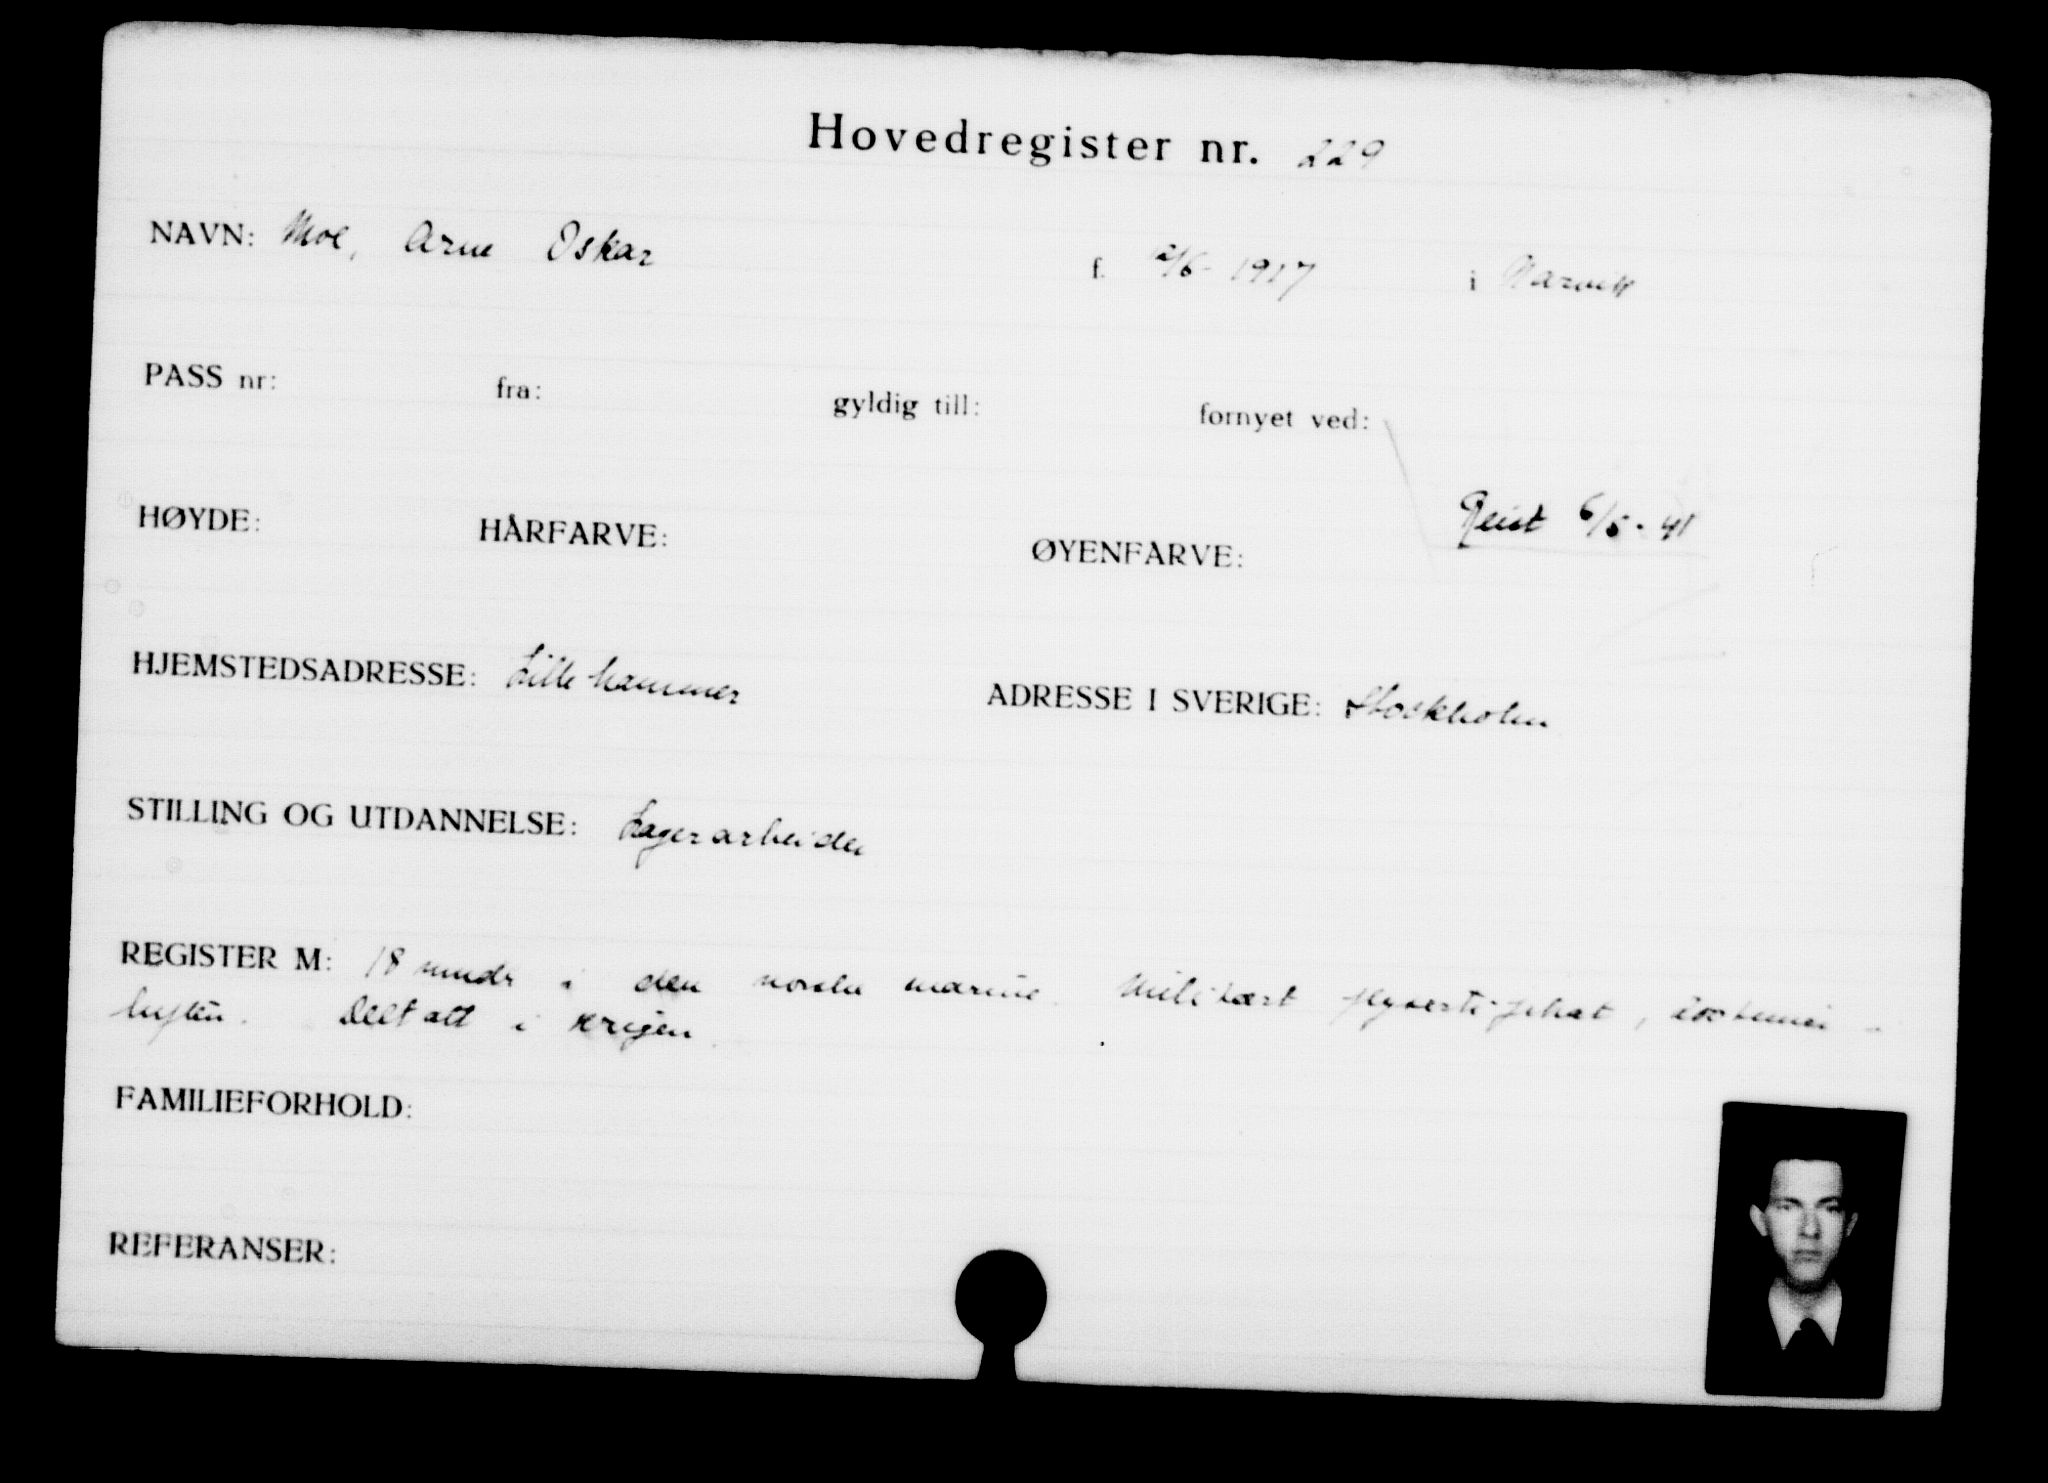 Hovedregister nr. 229
NAVN: Moe, Arne Oskar f. 2/6- 1917 i Narvik
PASS nr: fra: gyldig till: fornyet ved:
HØYDE: HÅRFARVE: ØYENFARVE: Reist 6/5-41
HJEMSTEDSADRESSE: Lillehammer ADRESSE I SVERIGE: Stockholm
STILLING OG UTDANNELSE: Lagerarbeider
REGISTER M: 18 mndr i den norske marine. Militært flysertifikat, timer i
luften. Deltatt i krigen.
FAMILIEFORHOLD:
REFERANSER: